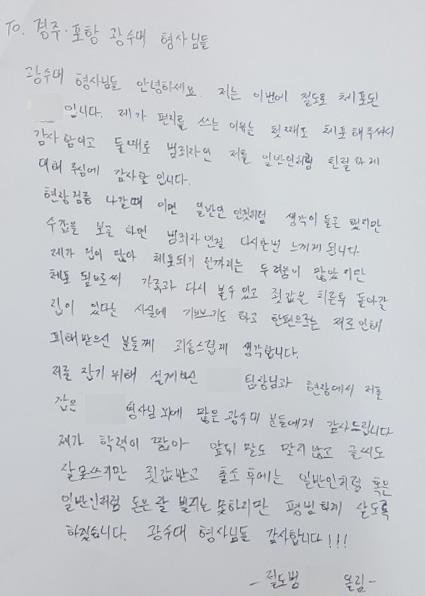 To. 경주·포항 광수대 형사님들
광수대 형사님들 안녕하세요. 저는 이번에 절도로 체포된
입니다. 제가 편지를 쓰는 이유는 첫째도 체포해주셔서
감사함이고 둘째로 범죄자인 저를 일반인처럼 친절하게
대해 주심에 감사함입니다.
현장검증 나갈때 이면 일반인 인것처럼 생각이 들곤 했지만
수갑을 보곤 하면 범죄자인걸 다시한번 느끼게 됩니다.
제가 겁이 많아 체포되기 전까지는 두려움이 많았지만
체포 됨으로써 가족과 다시 볼수 있고 죗값은 치룬후 돌아갈
집이 있다는 사실에 기쁘기도 하고 한편으로는 저로 인해
피해받으신 분들께 죄송스럽게 생각합니다.
저를 잡기 위해 설계하신 팀장님과 현장에서 저를
잡은 형사님 외에 많은 광수대 분들에게 감사드립니다
제가 학력이 짧아 앞뒤 말도 맞지 않고 글씨도
잘못쓰지만 죗값받고 출소 후에는 일반인처럼 혹은
일반인처럼 돈은 잘 벌지는 못하지만 평범하게 살도록
하겠습니다. 광수대 형사님들 감사합니다!!!
-절도범 올림-